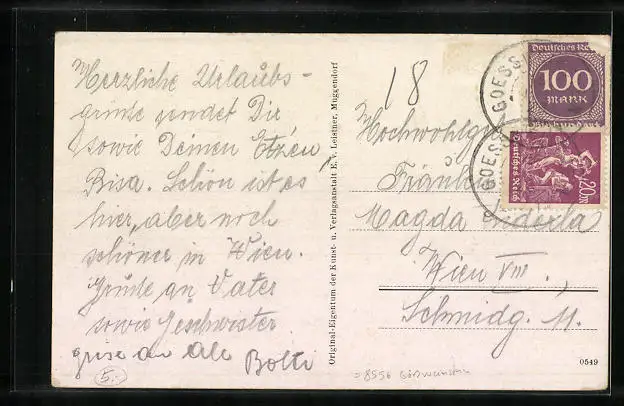 Herzliche Urlaubs-
grüße sendet Dir
sowie Deinen
Bisa. Schön ist es
hier, aber noch
schöner in Wien.
Grüße an Vater
sowie Geschwister
grise an Ale Bolti
5.-
Original-Eigentum der Kunst- u. Verlagsanstalt E. V. Leistner, Muggendorf
18
Hochwohlg
Fräulein
Magda
Wien VIII.,
Schmidg. 11.
0549
= 8556 Gößweinstein
GOESS
Deutsches Rei
100
MARK
GOESS
Deutsches Reich
20M